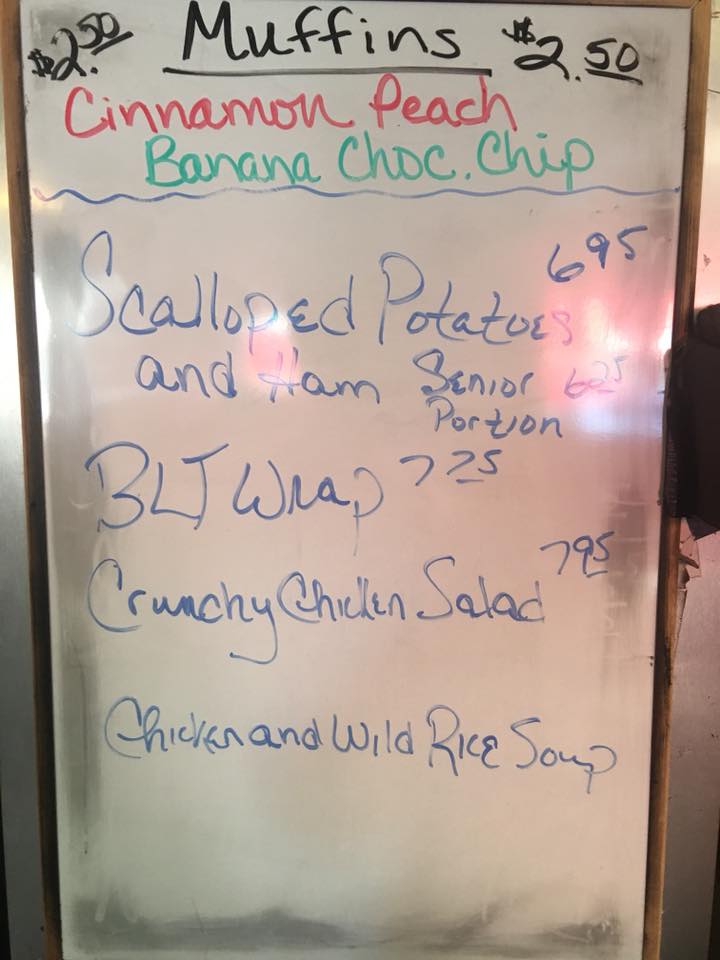 $2.50 Muffins $2.50
Cinnamon Peach
Banana Choc. Chip
Scalloped Potatoes 695
and Ham Senior 625
Portion
BLT Wrap 775
Crunchy Chicken Salad 795
Chicken and Wild Rice Soup